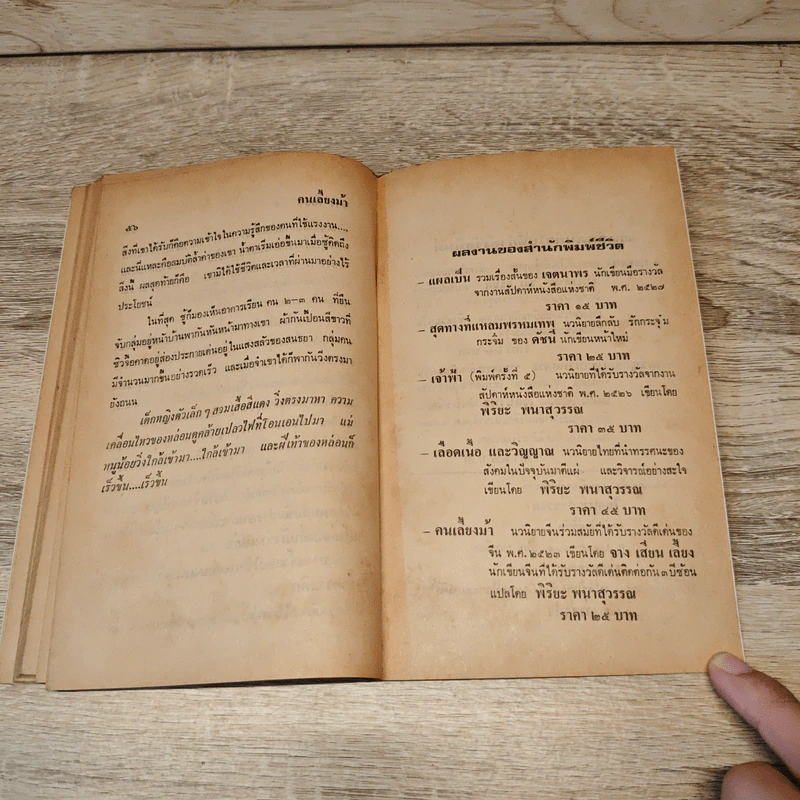 คนเลี้ยงม้า
๕๖
สิ่งที่เขาได้รับก็คือความเข้าใจในความรู้สึกของคนที่ใช้แรงงาน....
และนี่แหละคือสมบัติล้ำค่าของเขา น้ำตาเริ่มเอ่อขึ้นมาเมื่อซู้คิดถึง
สิ่งนี้ ผลสุดท้ายก็คือ เขามิได้ใช้ชีวิตและเวลาที่ผ่านมาอย่างไร้
ประโยชน์
ในที่สุด ซู้ก็มองเห็นอาคารเรียน คน ๒–๓ คน ที่ยืน
จับกลุ่มอยู่หน้าบ้านพากันหันหน้ามาทางเขา ผ้ากันเปื้อนสีขาวที่
ซิวจืออคาดอยู่ส่องประกายเด่นอยู่ในแสงสลัวของสนธยา กลุ่มคน
มีจำนวนมากขึ้นอย่างรวดเร็ว และเมื่อจำเขาได้ก็พากันวิ่งตรงมา
ยังถนน
เด็กหญิงตัวเล็ก ๆ สวมเสื้อสีแดง วิ่งตรงมาหา ความ
เคลื่อนไหวของหล่อนดูคล้ายเปลวไฟที่โอนเอนไปมา แม่
หนูน้อยวิ่งใกล้เข้ามา....ใกล้เข้ามา และฝีเท้าของหล่อนก็
เร็วขึ้น....เร็วขึ้น
ผลงานของสำนักพิมพ์ชีวิต
– แผลเป็น รวมเรื่องสั้นของ เจตนาพร นักเขียนมือรางวัล
จากงานสัปดาห์หนังสือแห่งชาติ พ.ศ. ๒๕๒๗
ราคา ๑๕ บาท
– สุดทางที่แหลมพรหมเทพ นวนิยายลึกลับ รักกระจุ๋ม
กระจิ๋ม ของ ดัชนี นักเขียนหน้าใหม่
ราคา ๒๕ บาท
– เจ้าฟ้า (พิมพ์ครั้งที่ ๕) นวนิยายที่ได้รับรางวัลจากงาน
สัปดาห์หนังสือแห่งชาติ พ.ศ. ๒๕๒๖ เขียนโดย
พิริยะ พนาสุวรรณ
ราคา ๓๕ บาท
– เลือดเนื้อ และวิญญาณ นวนิยายไทยที่นำทรรศนะของ
สังคมในปัจจุบันมาตีแผ่ และวิจารณ์อย่างสะใจ
เขียนโดย พิริยะ พนาสุวรรณ
ราคา ๔๕ บาท
– คนเลี้ยงม้า นวนิยายจีนร่วมสมัยที่ได้รับรางวัลดีเด่นของ
จีน พ.ศ. ๒๕๒๓ เขียนโดย จาง เสี่ยน เลี้ยง
นักเขียนจีนที่ได้รับรางวัลดีเด่นติดต่อกัน ๓ ปีซ้อน
แปลโดย พิริยะ พนาสุวรรณ
ราคา ๒๕ บาท